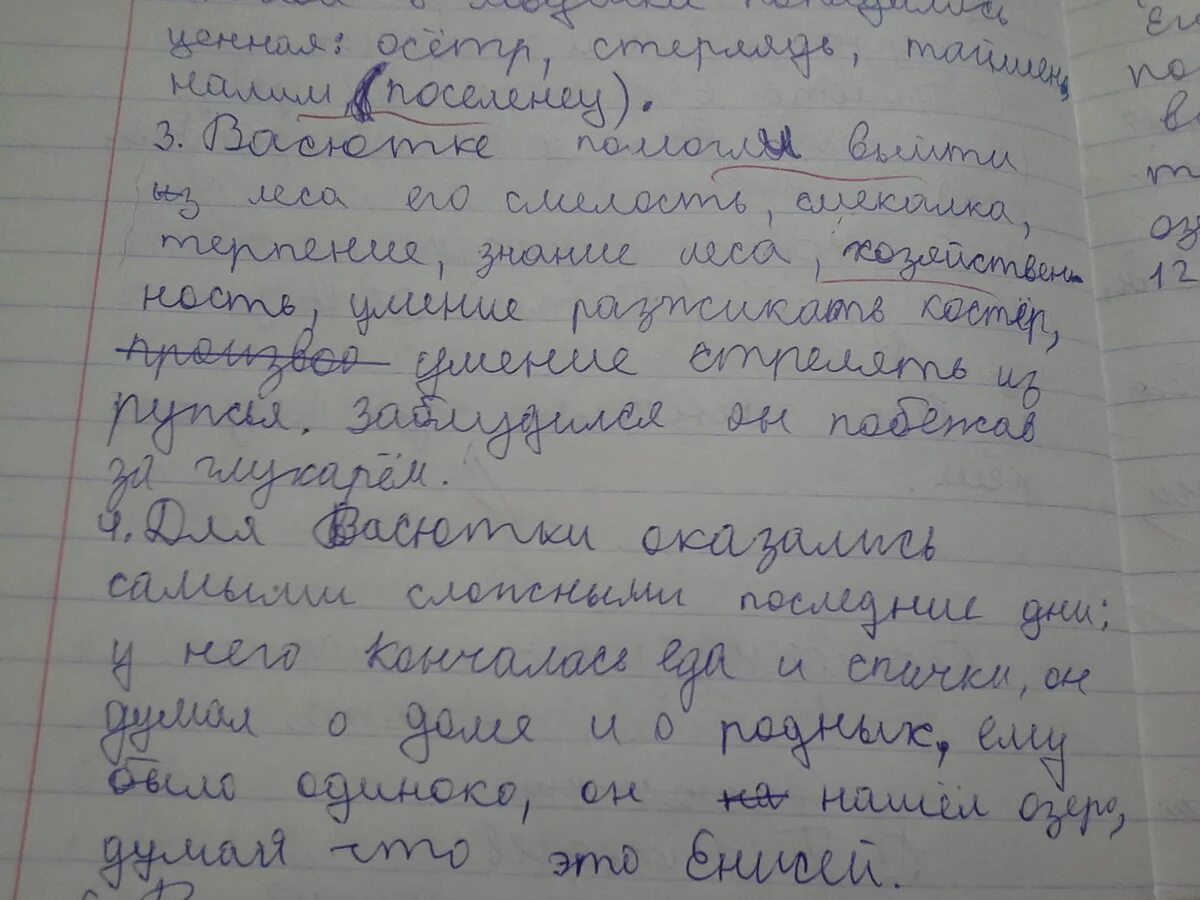 в попадалась
ценная: осётр, стерлядь, таймень,
налим, (поселенец).
3. Васютке помогли выйти
из леса его смелость, смекалка,
терпение, знание леса, хозяйствен-
ность, умение разжикать костёр,
произвоо умение стрелять из
ружья. Заблудился он побежав
за глухарём.
4. Для Васютки оказались
самыми сложными последние дни;
у него кончалась еда и спички, он
думал о доме и о родных, ему
было одиноко, он на нашёл озеро,
думая что это Енисей.
по
в
т
оз
12